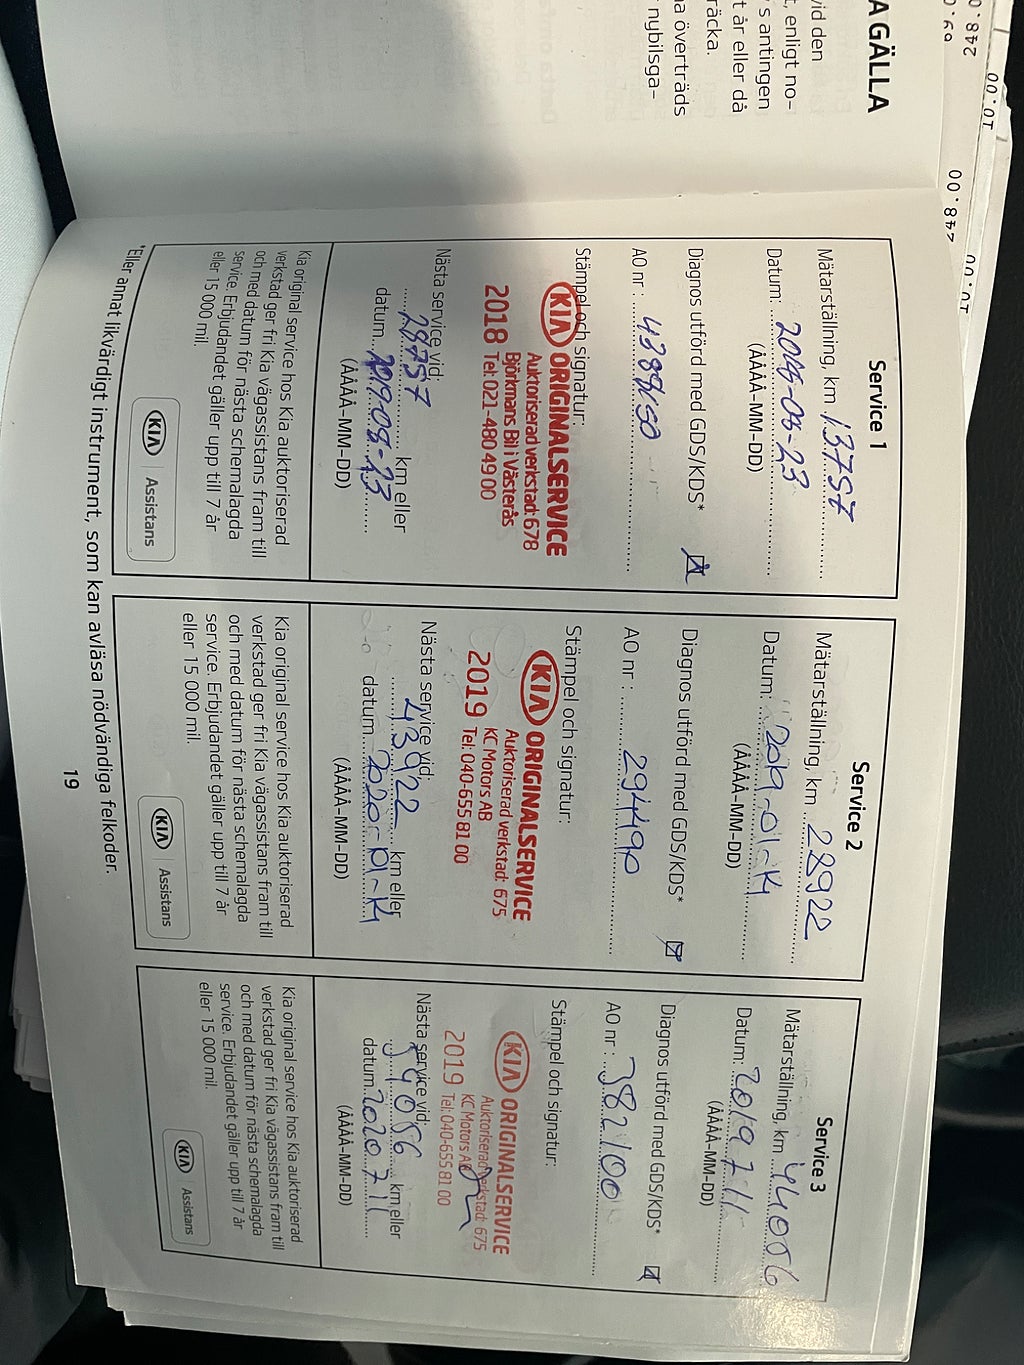 A GÄLLA
vid den
t, enligt no-
's antingen
t år eller då
räcka.
na överträds
nybilsga-
Service 1
Mätarställning, km 13757
Datum: 2018-08-23
(ÅÅÅÅ-MM-DD)
Diagnos utförd med GDS/KDS*
AO nr :
Stämpel och signatur:
KIA ORIGINALSERVICE
Auktoriserad verkstad: 678
Björkmans Bil i Västerås
2018 Tel: 021-480 49 00
Nästa service vid:
28757 km eller
datum 2019-08-23
(ÅÅÅÅ-MM-DD)
Kia original service hos Kia auktoriserad
verkstad ger fri Kia vägassistans fram till
och med datum för nästa schemalagda
service. Erbjudandet gäller upp till 7 år
eller 15 000 mil.
KIA Assistans
Service 2
Mätarställning, km 28922
Datum: 2019-01-14
(ÅÅÅÅ-MM-DD)
Diagnos utförd med GDS/KDS*
AO nr : 294490
Stämpel och signatur:
KIA ORIGINALSERVICE
Auktoriserad verkstad: 675
KC Motors AB
2019 Tel: 040-655 81 00
Nästa service vid:
43922 km eller
datum 2020-01-14
(ÅÅÅÅ-MM-DD)
Kia original service hos Kia auktoriserad
verkstad ger fri Kia vägassistans fram till
och med datum för nästa schemalagda
service. Erbjudandet gäller upp till 7 år
eller 15 000 mil.
KIA Assistans
Service 3
Mätarställning, km 44056
Datum: 2019 7 11
(ÅÅÅÅ-MM-DD)
Diagnos utförd med GDS/KDS*
AO nr : 382100
Stämpel och signatur:
KIA ORIGINALSERVICE
Auktoriserad verkstad: 675
KC Motors AB
2019 Tel: 040-655 81 00
Nästa service vid:
59056 km eller
datum 2020 7 11
(ÅÅÅÅ-MM-DD)
Kia original service hos Kia auktoriserad
verkstad ger fri Kia vägassistans fram till
och med datum för nästa schemalagda
service. Erbjudandet gäller upp till 7 år
eller 15 000 mil.
KIA Assistans
*Eller annat likvärdigt instrument, som kan avläsa nödvändiga felkoder.
19